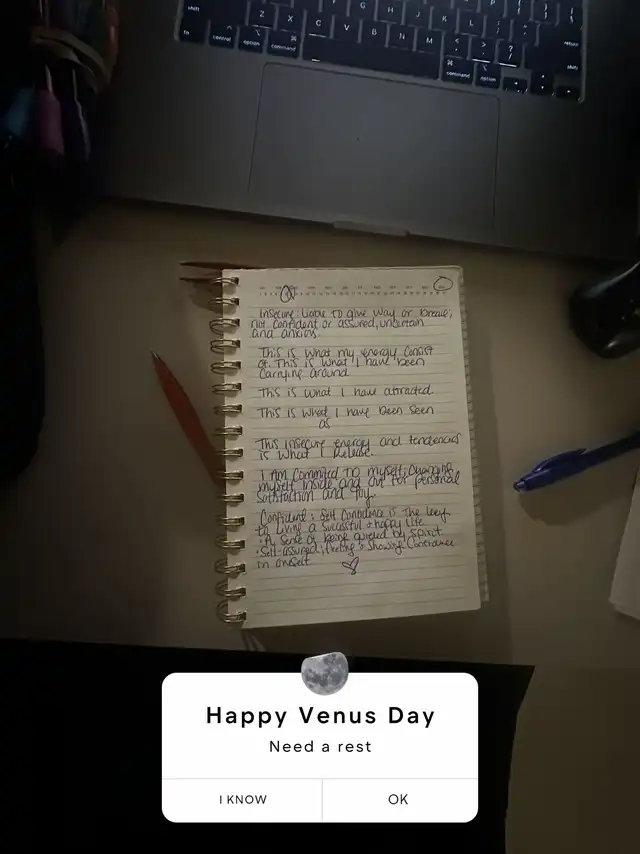 Z X C V B N M < > ?
, . /
shift
fn control option command
command option
return
shift
Insecure: Liable to give way or break;
not confident or assured, uncertain
and anxious.
This is what my energy consist
of. This is what I have been
carrying around
This is what I have attracted.
This is what I have been seen
as
This insecure energy and tendencies
is what I release.
I Am Commited to myself, Changing
myself inside and out for personal
satisfaction and joy.
Confident: Self Confidence is the key
to Living a successful + happy life
• A sense of being guided by spirit
• Self-assured; feeling + showing confidence
in oneself
Happy Venus Day
Need a rest
I KNOW
OK